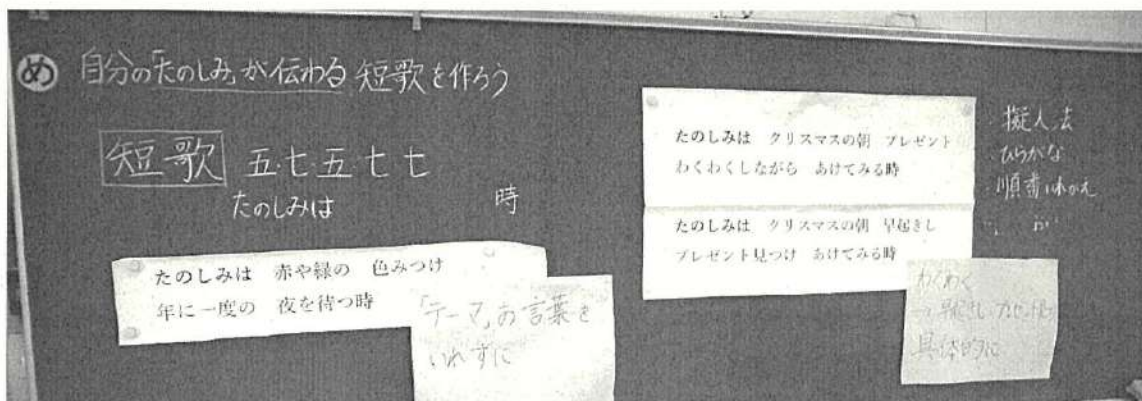 め 自分の「たのしみ」が伝わる短歌を作ろう
短歌 五・七・五・七・七
たのしみは 時
たのしみは 赤や緑の 色みつけ
年に一度の 夜を待つ時
「テーマ」の言葉を
いれずに
たのしみは クリスマスの朝 プレゼント
わくわくしながら あけてみる時
たのしみは クリスマスの朝 早起きし
プレゼント見つけ あけてみる時
・擬人法
・ひらがな
・順番いれかえ
わくわく
→早起きし
具体的に